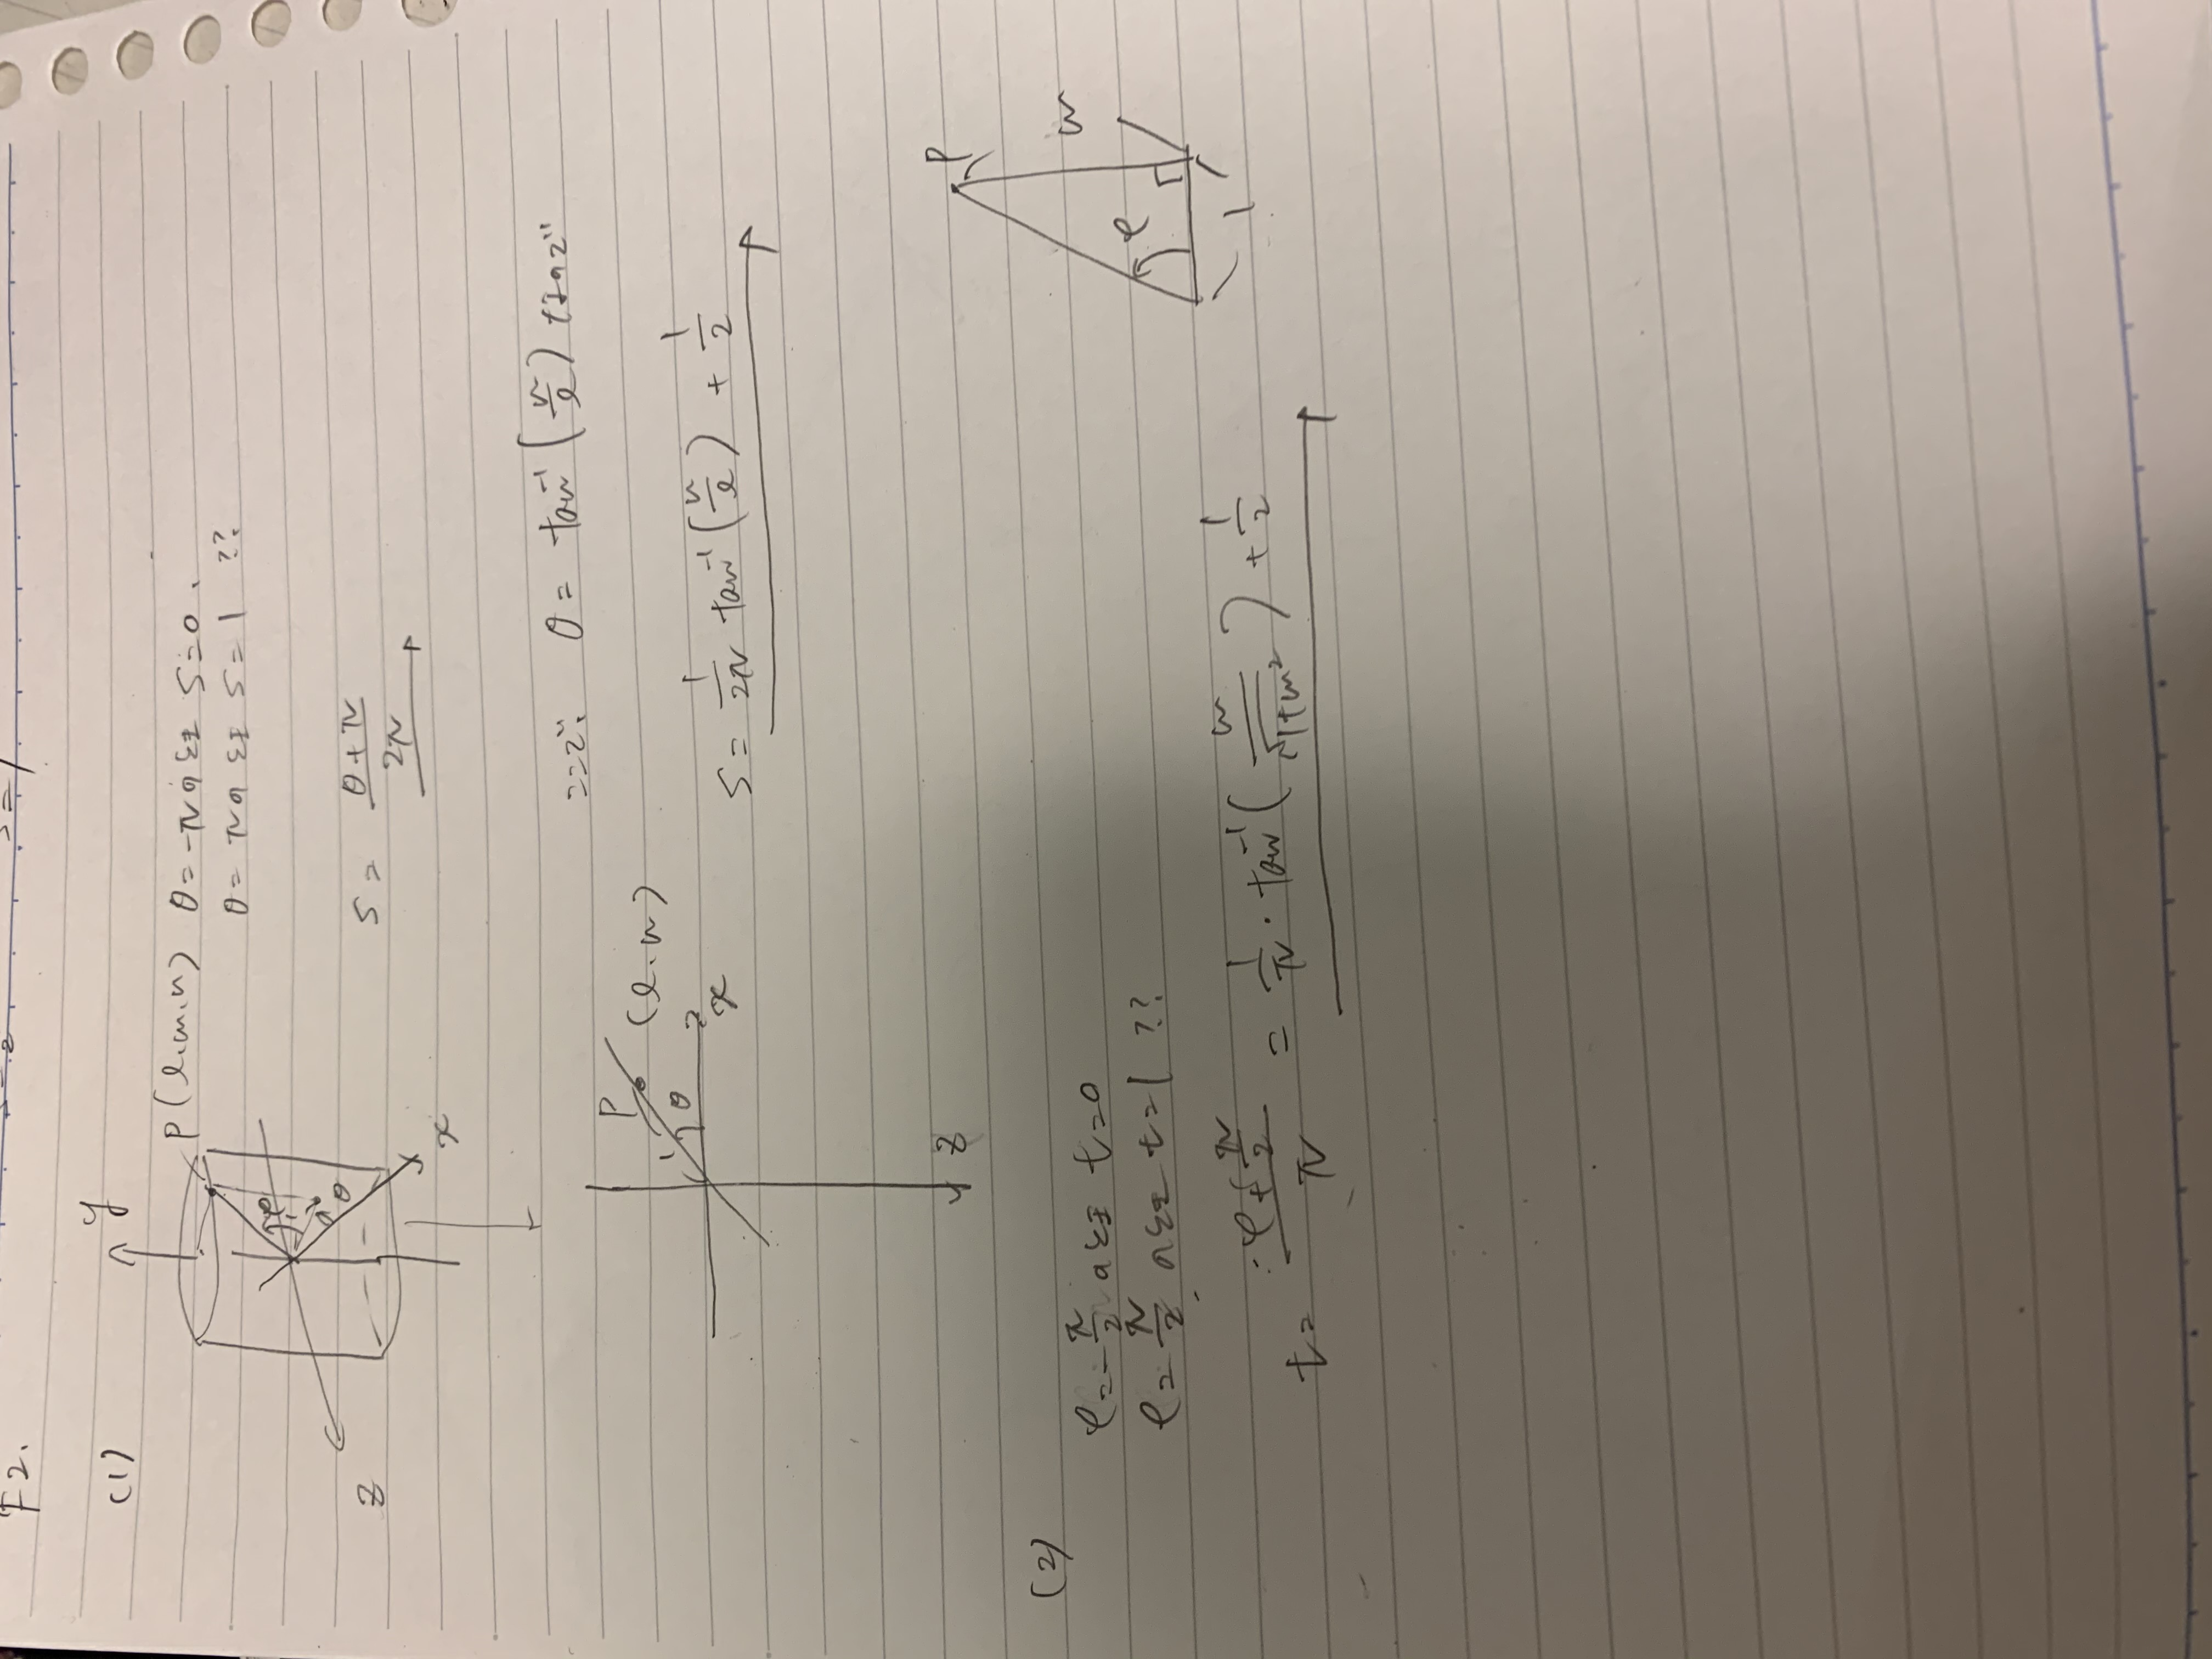 F2.
(1)
y
P(l.m.n) θ=-πのとき S=0.
θ=πのとき S=1 ??
φ
θ
z
x
S= θ+π/2π
ここで. θ= tan⁻¹(n/l) なので
P
(l.n)
1
θ
x
S= 1/2π tan⁻¹(n/l) + 1/2
z
P
m
φ
1
(2)
φ=-π/2 のとき t=0
φ=π/2 のとき t=1 ??
t= φ+π/2/π = 1/π・tan⁻¹(m/√1+m²) + 1/2